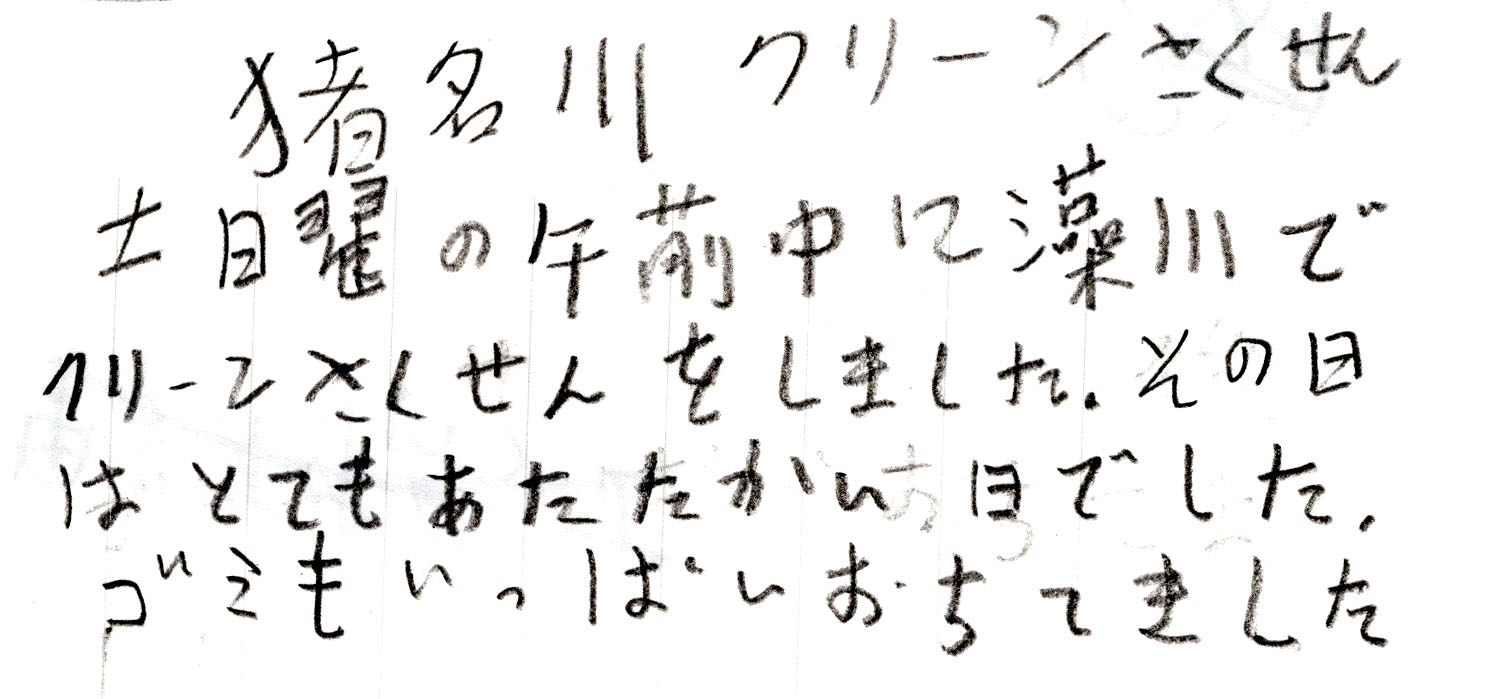 猪名川 クリーンさくせん
土日曜の午前中に藻川で
クリーンさくせんをしました.その日
はとてもあたたかい日でした.
ゴミもいっぱいおちてました